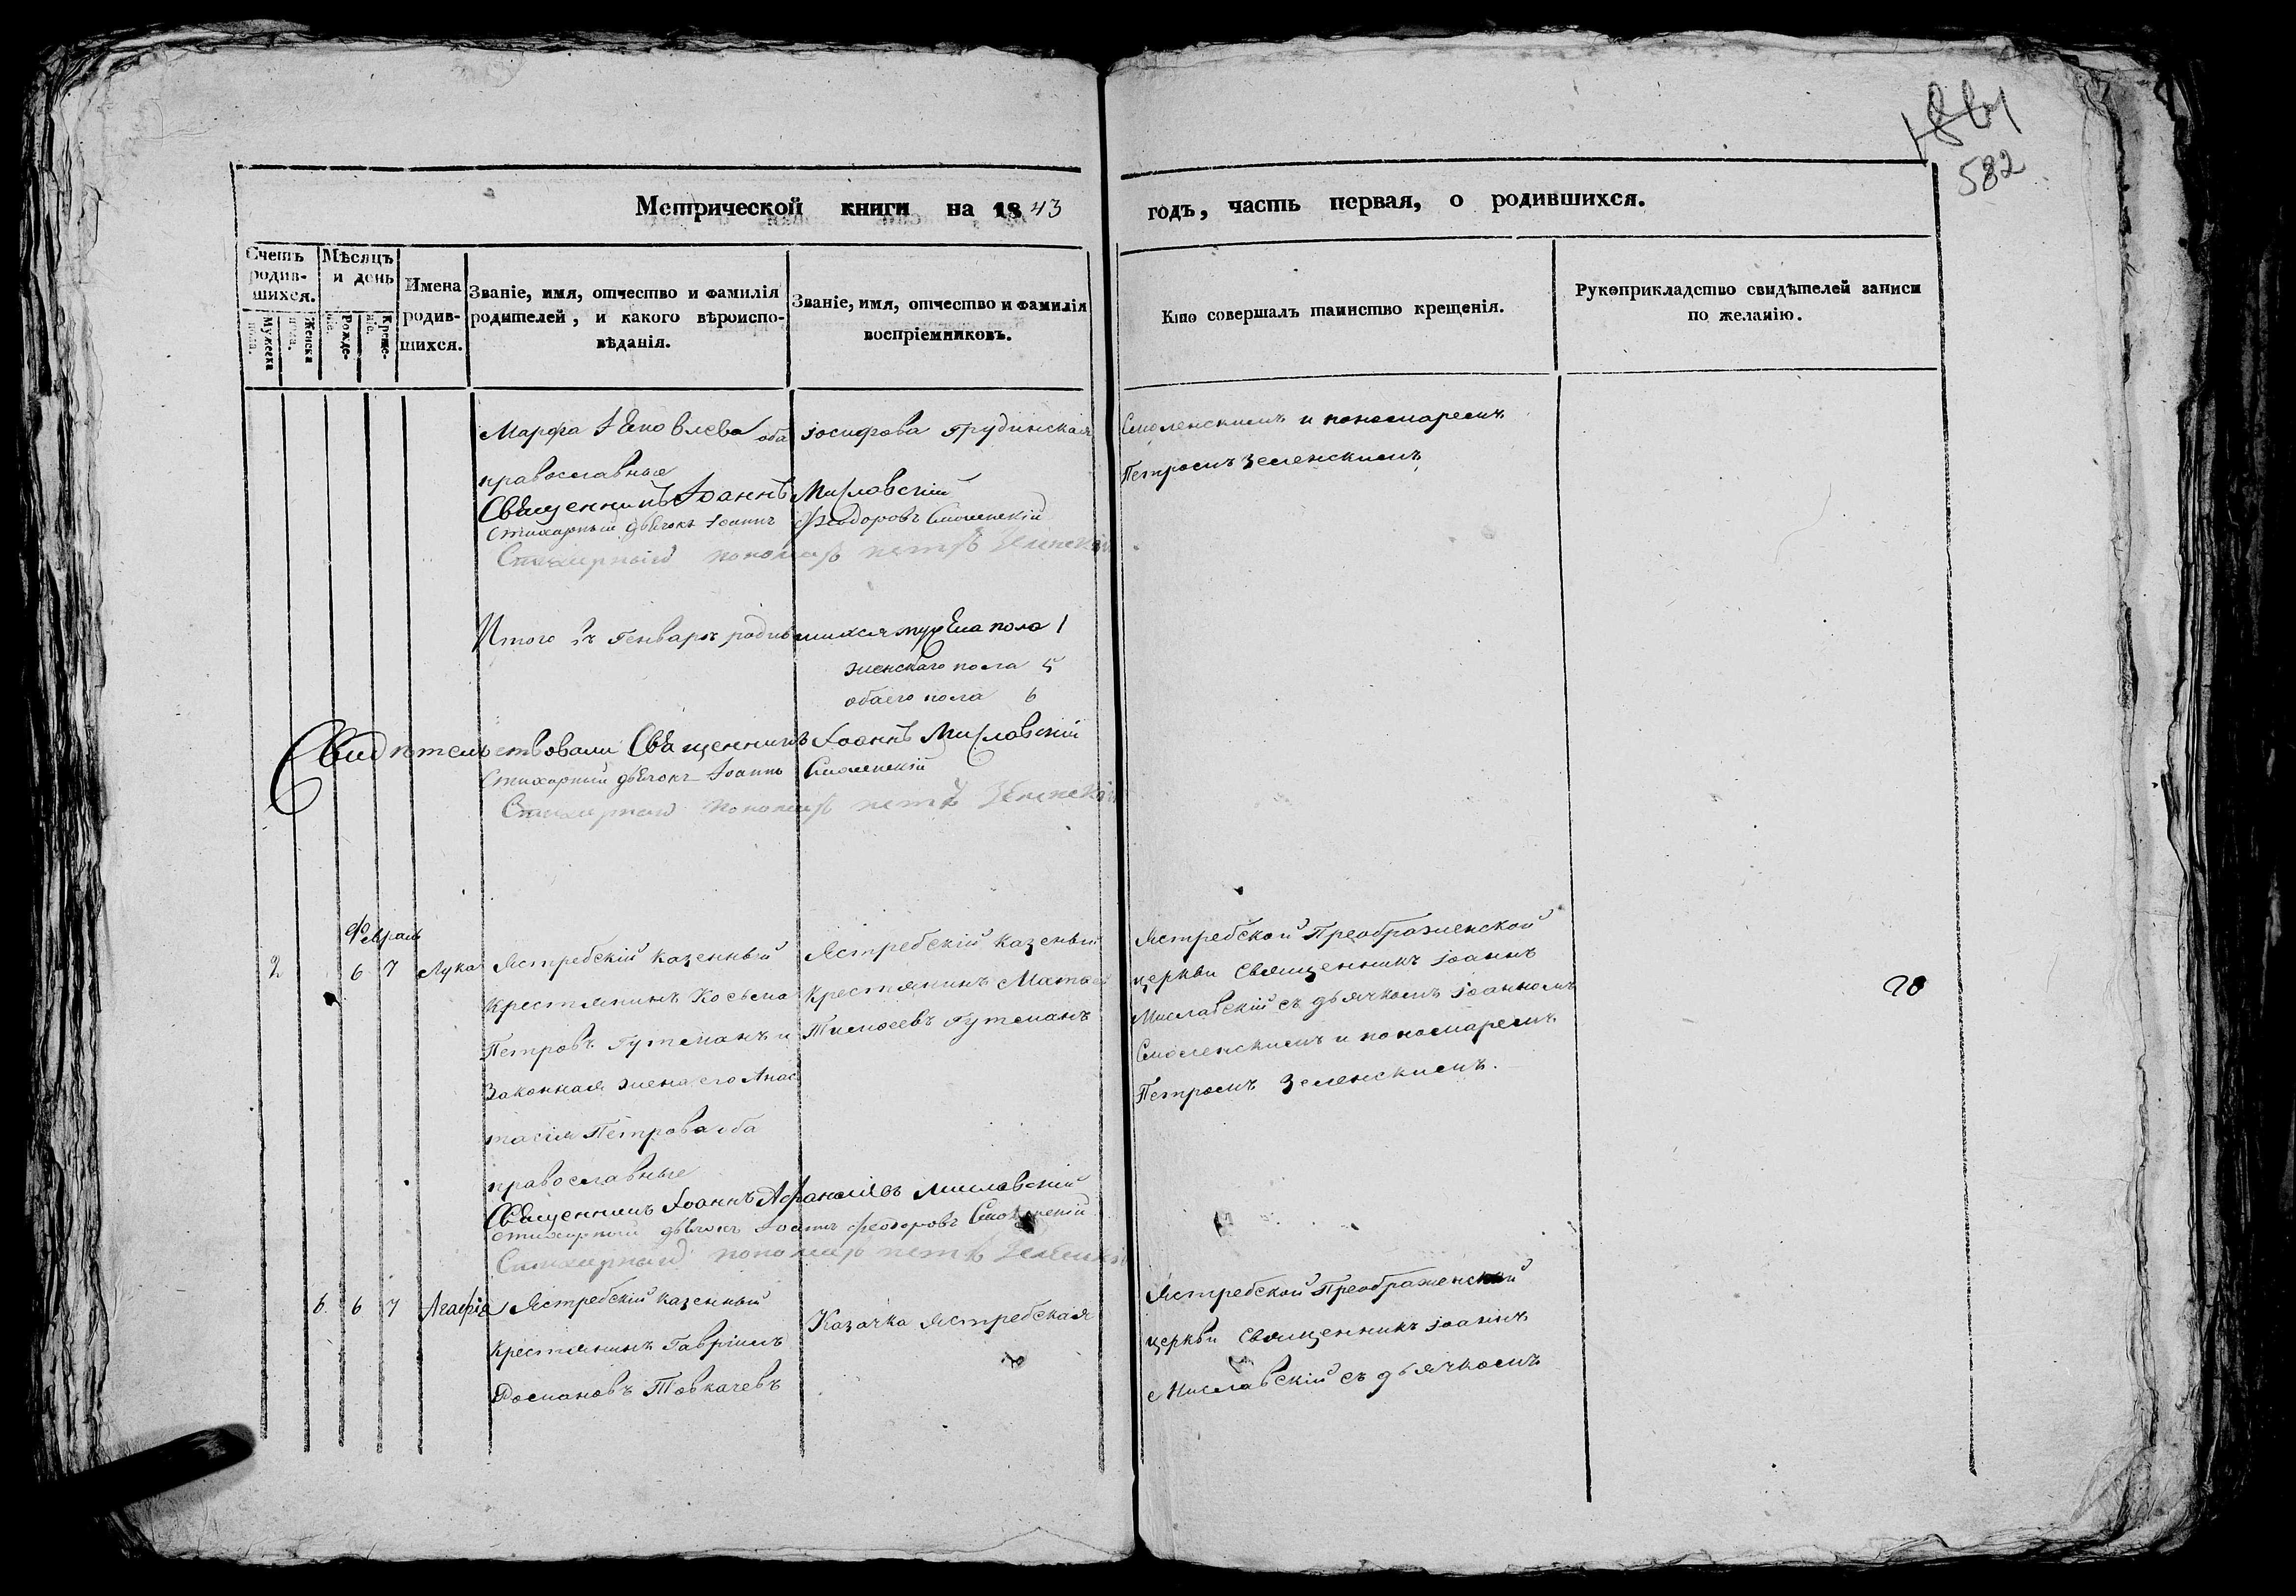 1861
582
Метрической книги на 1843 годъ, часть первая, о родившихся.
Счетъ родившихся.
Мужеска пола.
Женска пола.
Мѣсяцъ и день
Рожденіе.
Крещеніе.
Имена родившихся.
Званіе, имя, отчество и фамилія родителей, и какого вѣроисповѣданія.
Званіе, имя, отчество и фамилія воспріемниковъ.
Кто совершалъ таинство крещенія.
Рукоприкладство свидѣтелей записи по желанію.
Марфа Яковлева оба
православные
Іосифова Грудинская
Смоленскимъ и пономаремъ
Петромъ Зеленскимъ
Священникъ Іоаннъ Мисловскій
Стихарный дьячокъ Іоаннъ Феодоровъ Смоленскій
Стихарный пономарь петръ Зеленскій
Итого въ Генварѣ родившихся муска пола 1
женскаго пола 5
обоего пола 6
Свидѣтельствовали Священникъ Іоаннъ Мисловскій
Стихарный дьячокъ Іоаннъ Смоленскій
Стихарный пономарь петръ Зеленскій
Февраль
2 6 7 Лука
Ястребскій казенный
крестянинъ Косьма
Петровъ Гутманъ и
Законная жена его Анас
тасія Петрова оба
православные
Ястребскій казеный
крестянинъ Матвей
Тимоѳеевъ Гутманъ
Ястребской Преображенской
церкви Священникъ Іоаннъ
Мисловскій съ дьячкомъ Іоанномъ
Смоленскимъ и пономаремъ
Петромъ Зеленскимъ.
20
Священникъ Іоаннъ Афанасіевъ Мисловскій
стихарный дьячокъ Іоаннъ Феодоровъ Смоленскій
Стихарный пономарь петръ Зеленскій
6 6 7 Агафія
Ястребскій казенный
крестянинъ Гавріилъ
Романовъ Товкачевъ
Казачка Ястребская
Ястребской Преображенской
церкви Священникъ Іоаннъ
Мисловскій съ дьячкомъ